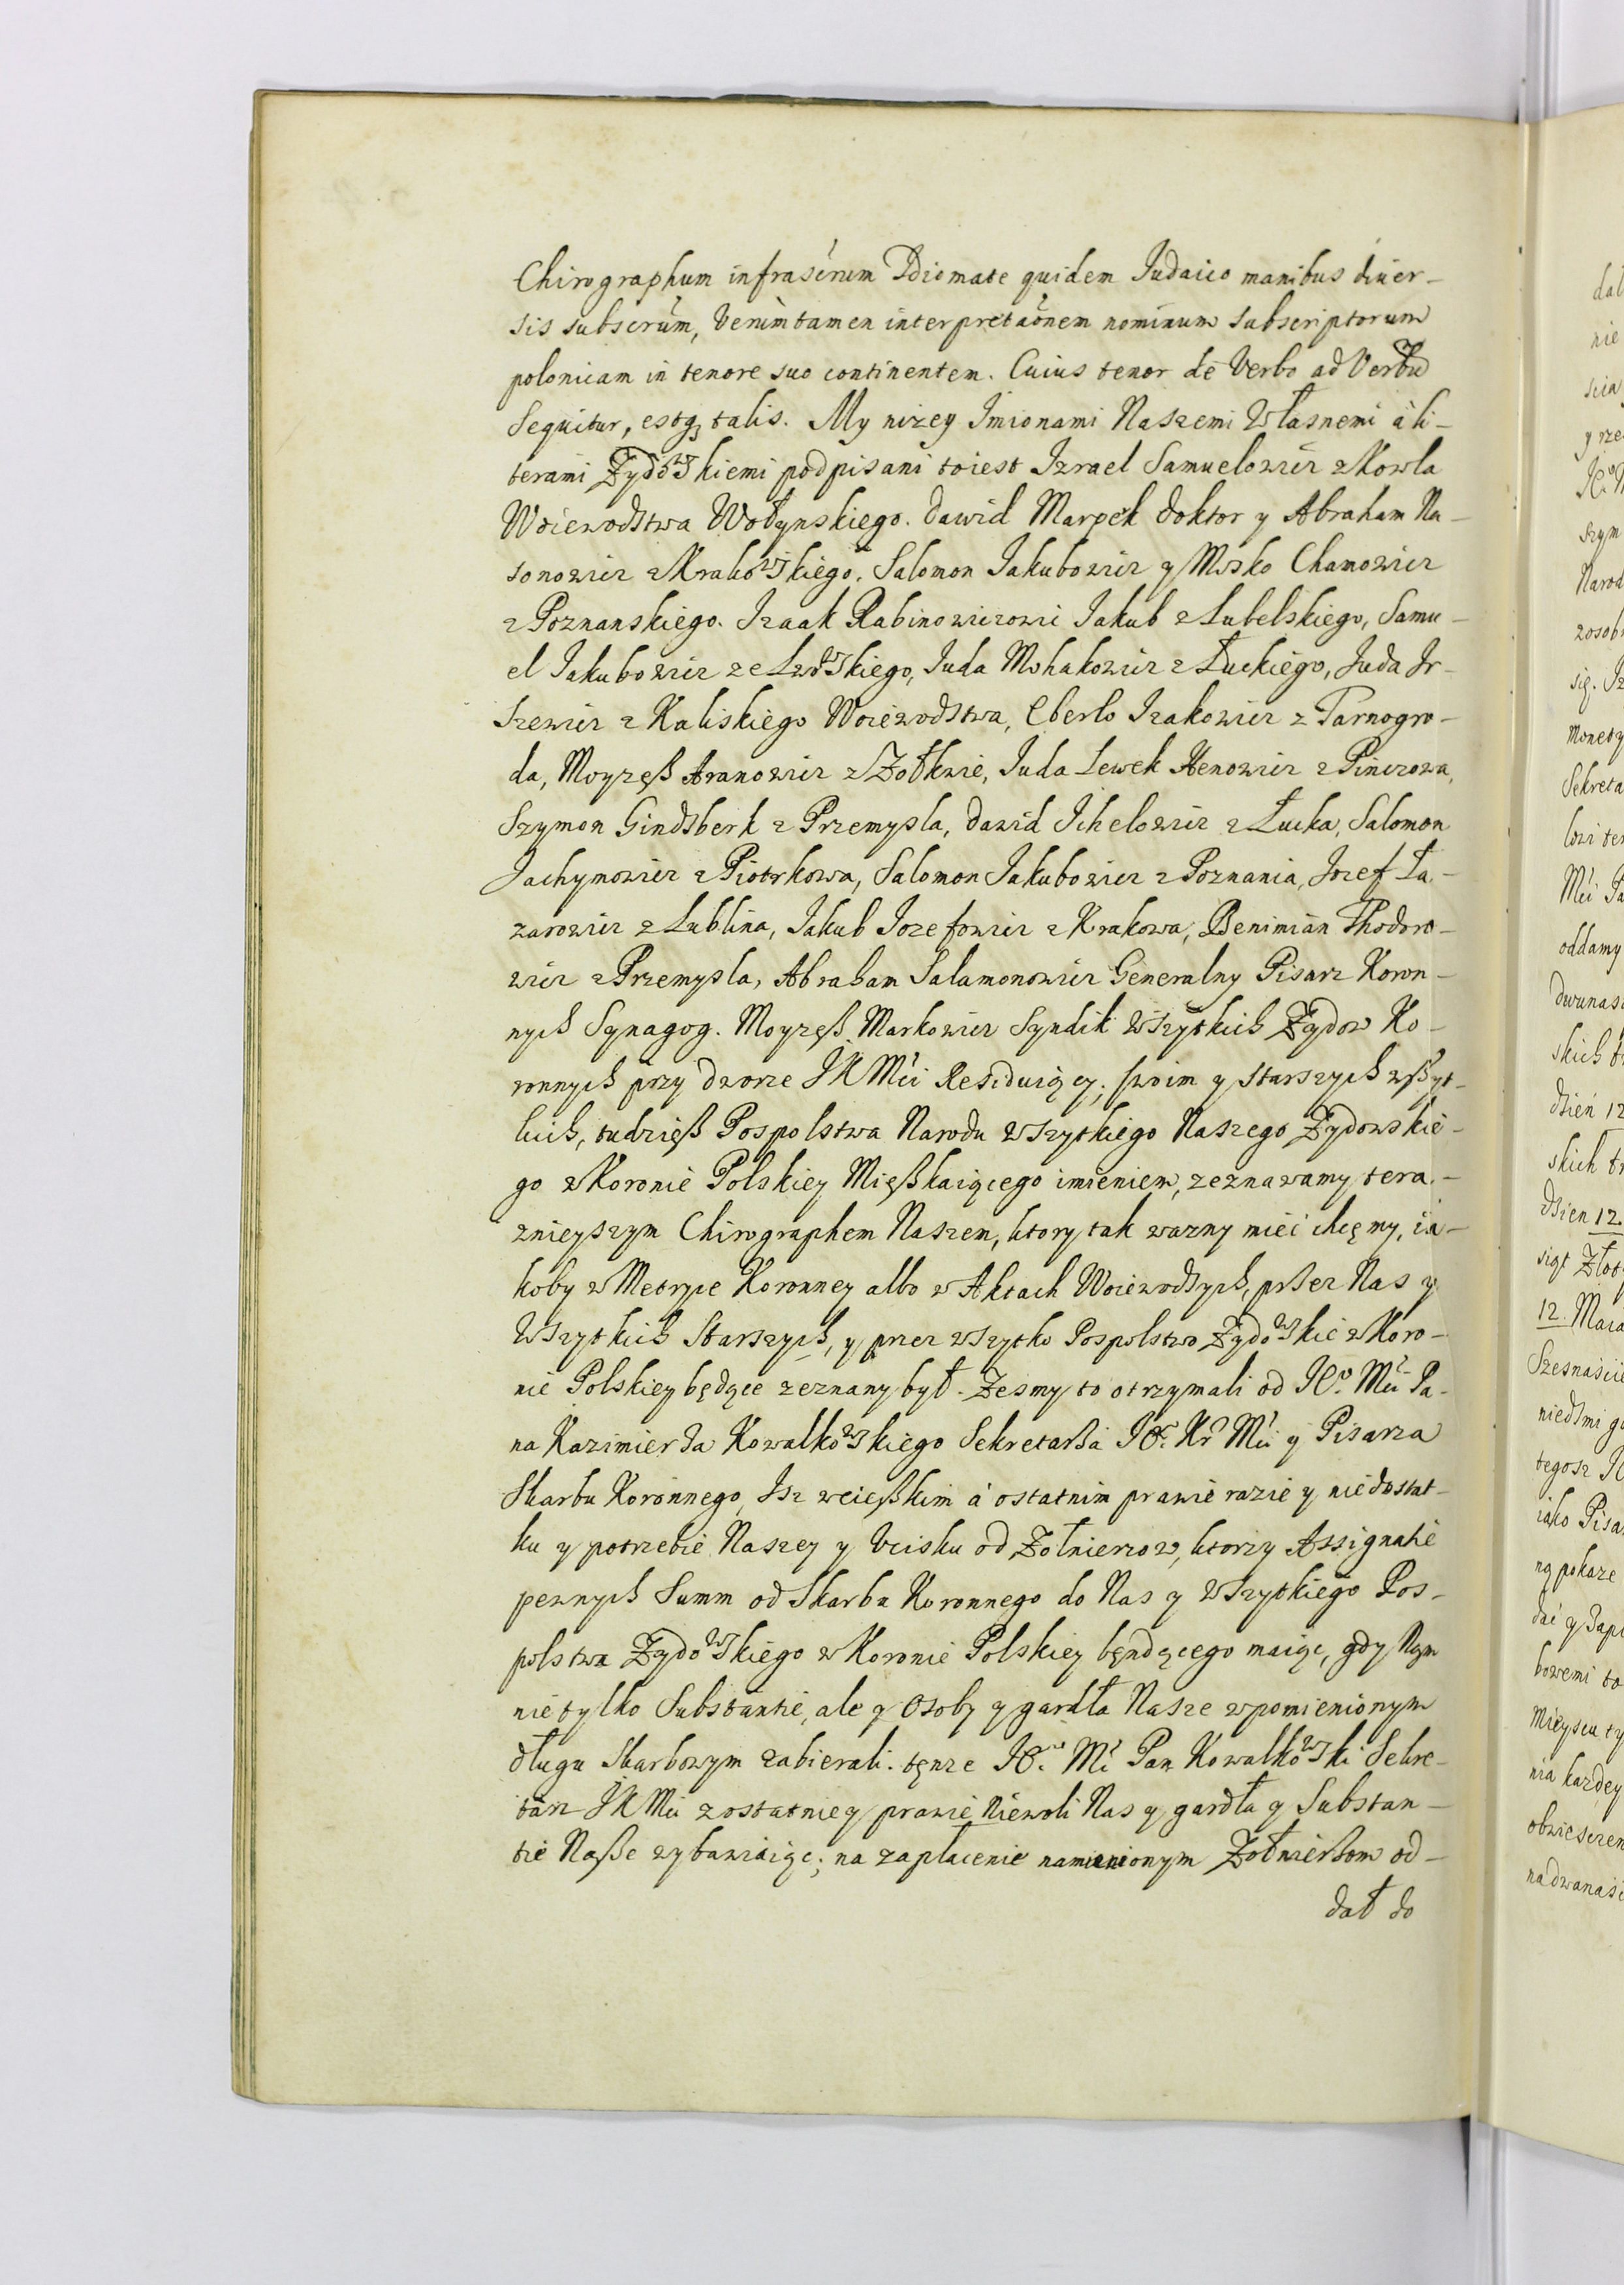 Chirographum infrascrum Idiomate quidem Iudaico manibus diuer-
sis subscrum, Verumtamen interpretaonem nominum subscriptorum
polonicam in tenore suo continentem. Cuius tenor de Verbo ad Verbu
Sequitur, estq talis. My nizey Jmionami Naszemi Własnemi à li-
terami Zydowskiemi podpisani toiest Jzrael Samuelowicz z Kowla
Woiewodstwa Wołynskiego. Dawid Marpek Doktor y Abraham Na-
sonowicz z Krakowskiego, Salomon Jakubowicz y Moszko Chamowicz
z Poznanskiego. Jzaak Rabinowiczowi Jakub z Lubelskiego, Samu-
el Jakubowicz ze Lwowskiego, Juda Mohakowicz z Łuckiego, Juda Jr-
szewicz z Kaliskiego Woiewodstwa, Eberlo Jzakowicz z Tarnogro-
da, Moyzęß Aranowicz z Zołkwie, Juda Lewek Henowicz z Pinczowa,
Szymon Gindsberk z Przemysla, Dawid Jchelowicz z Łucka, Salomon
Jachymowicz z Piotrkowa, Salomon Jakubowicz z Poznania, Jozef Ła-
zarowicz z Lublina, Jakub Jozefowicz z Krakowa, Benimian Thodoro-
wicz z Przemysla, Abraham Salamonowicz Generalny Pisarz Koron-
nych Synagog. Moyzęß Markowicz Syndik Wszytkich Zydow Ko-
ronnych przy dworze JKMći Residuiący, swoim y starszych wßyt-
kich, tudzięß Pospolstwa Narodu Wszytkiego Naszego Zydowskie-
go w Koronie Polskiey Mięßkaiącego imieniem, zeznawamy tera-
znieyszym Chirographem Naszem, ktory tak wazny mieć chcęmy, ia-
koby w Metryce Koronney albo w Aktach Woiewodzych, przez Nas y
Wszytkich Starszych, y przez wszytko Pospolstwo Zydowskie w Koro-
nie Polskiey będące zeznany był. Zesmy to otrzymali od JE° Mći Pa-
na Kazimierza Kowalkowskiego Sekretarza JE° Kr Mći y Pisarza
Skarbu Koronnego, Jsz wcięßkim á ostatnim prawie razie y niedostat-
ku y potrzebie Naszey y Vcisku od Zołnierzow, ktorzy Assignatie
pewnych Summ od Skarbu Koronnego do Nas y Wszytkiego Pos-
polstwa Zydowskiego w Koronie Polskiey będącego maiąc, gdy Nam
nie tylko Substantie, ale y Osoby y gardła Nasze wpomienionym
długu Skarbowym zabierali. tęnze JE° Mć Pan Kowalkowski Sekre-
tarz JKMći zostatniey prawie Niewoli Nas y gardła y Substan-
tie Naße wybawiaiąc; na zapłacenie namienionym Zołnierzom od-
dał do